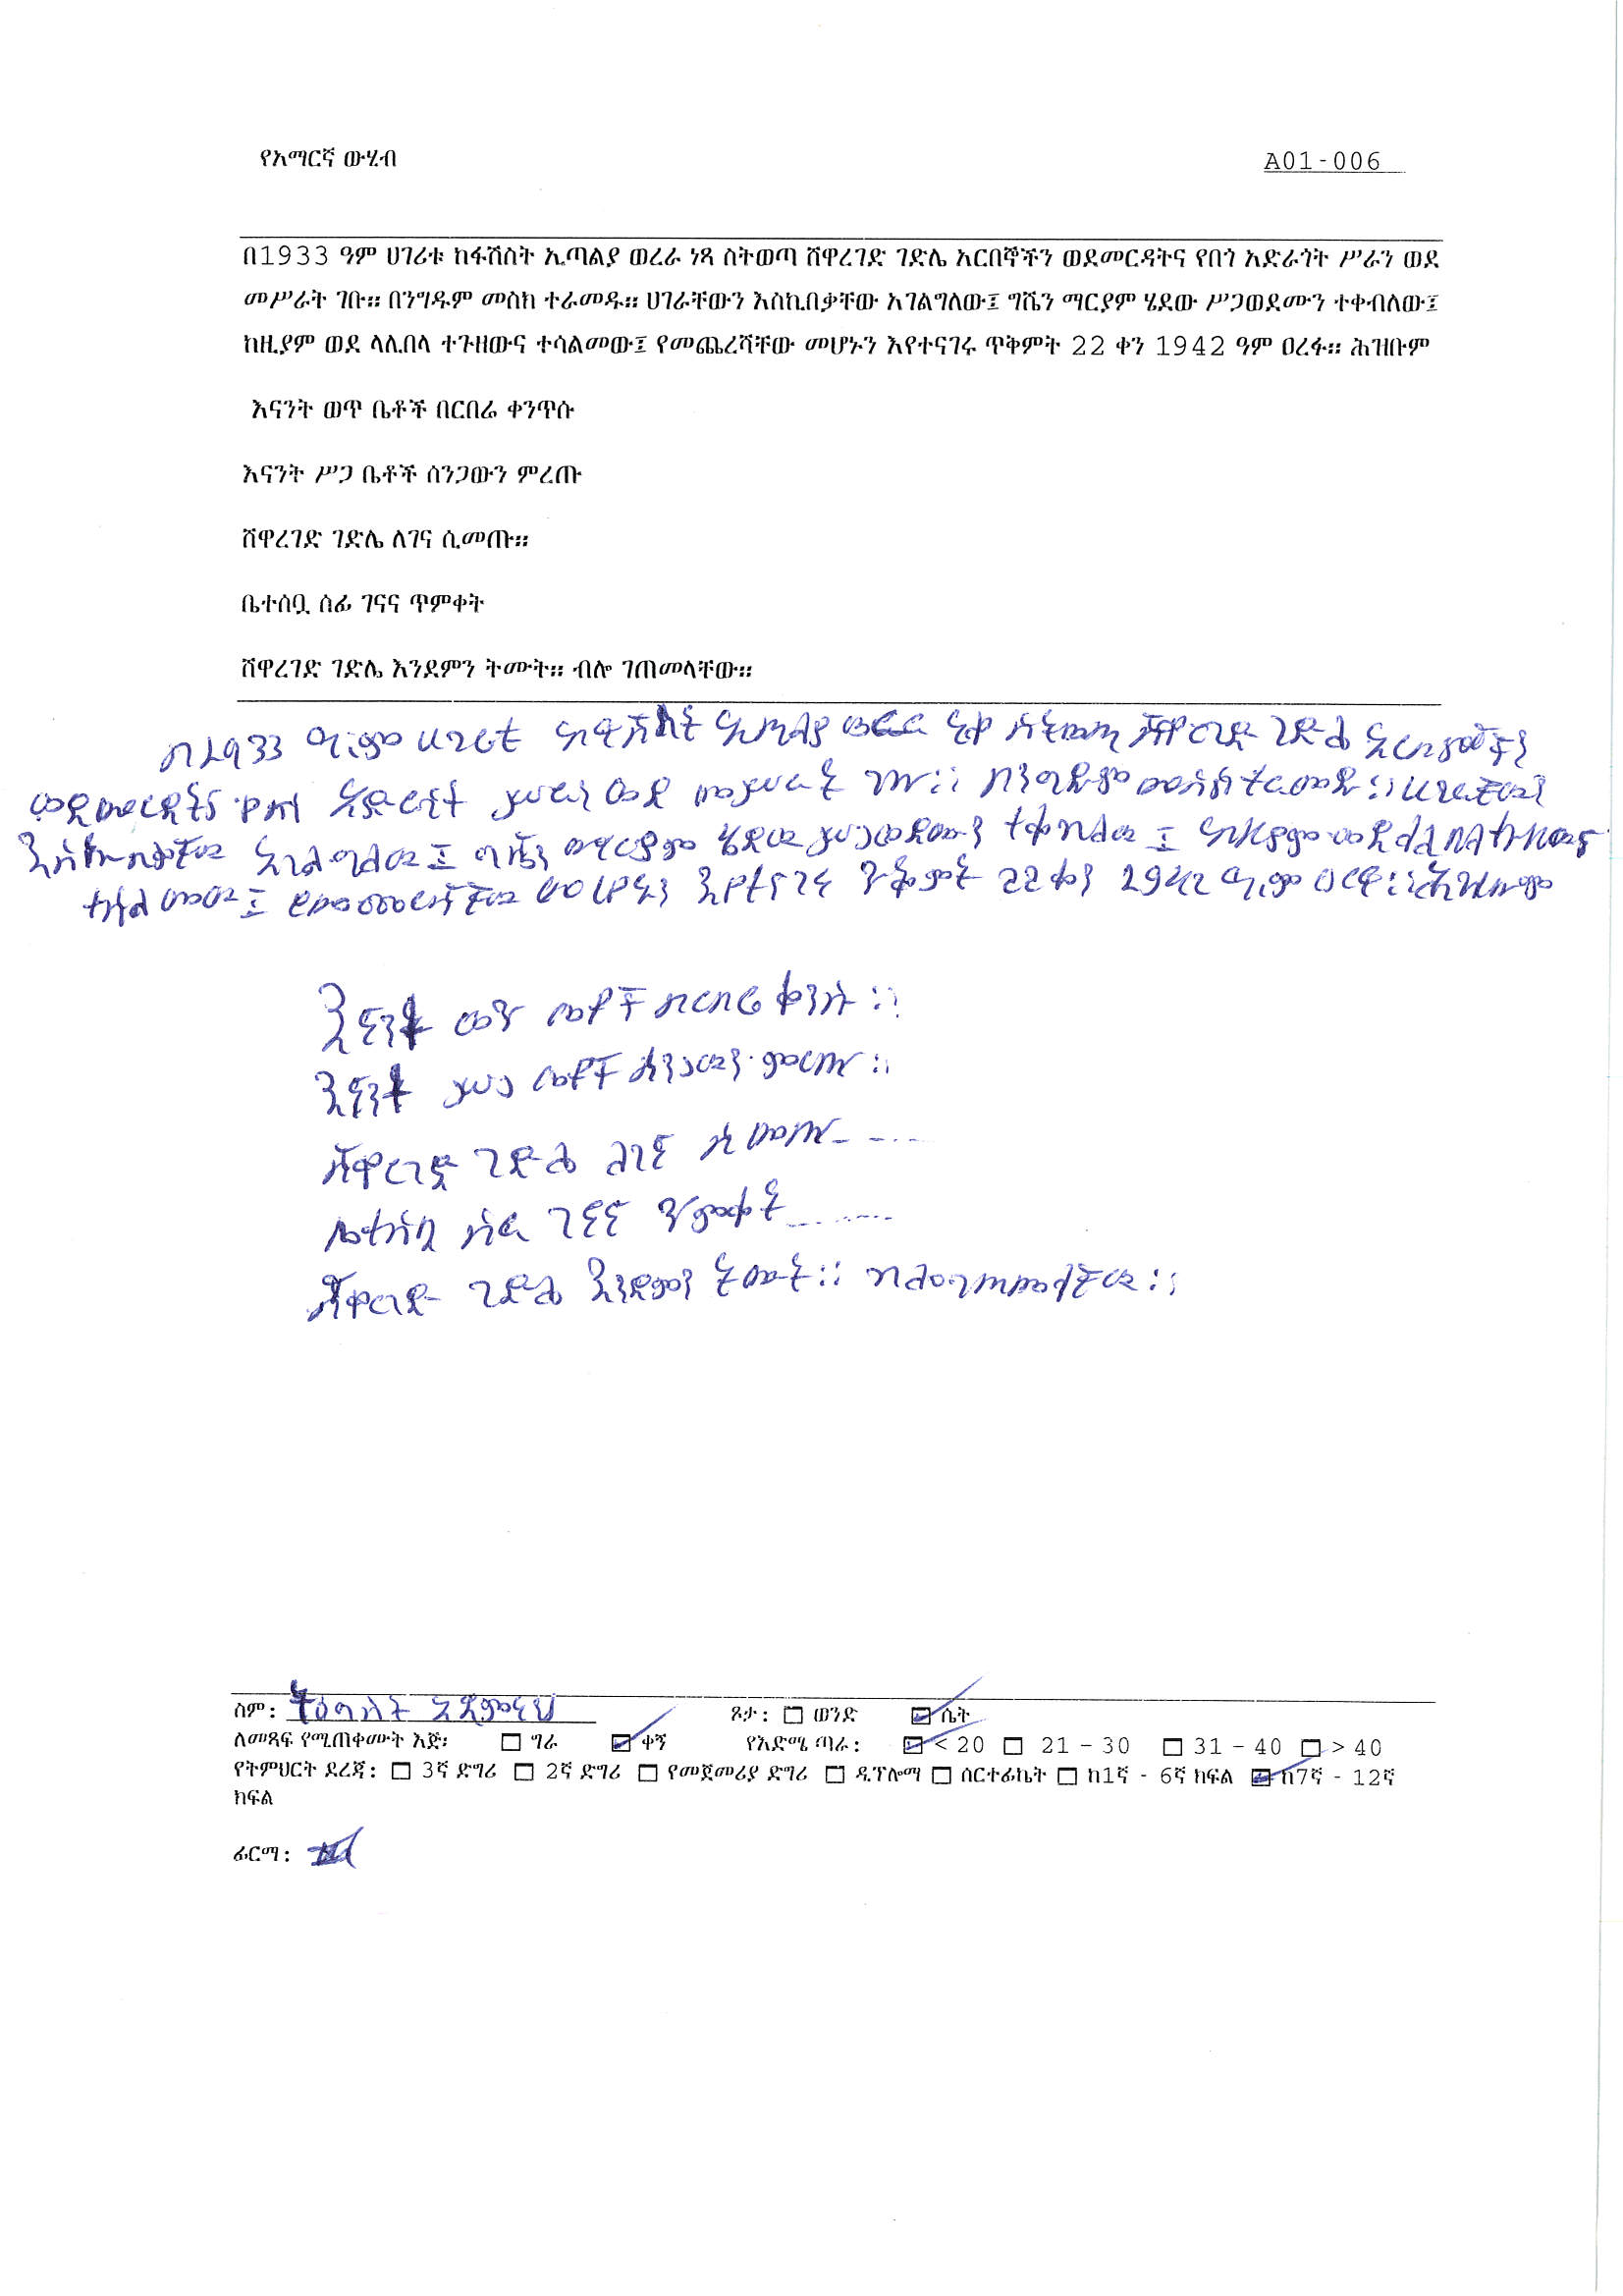 የአማርኛ ውሂብ
A01-006
በ1933 ዓም ሀገሪቱ ከፋሽስት ኢጣልያ ወረራ ነጻ ስትወጣ ሸዋረገድ ገድሌ አርበኞችን ወደመርዳትና የበጎ አድራጎት ሥራን ወደ
መሥራት ገቡ። በንግዱም መስክ ተራመዱ። ሀገራቸውን እስኪበቃቸው አገልግለው፤ ግሼን ማርያም ሄደው ሥጋወደሙን ተቀብለው፤
ከዚያም ወደ ላሊበላ ተጉዘውና ተሳልመው፤ የመጨረሻቸው መሆኑን እየተናገሩ ጥቅምት 22 ቀን 1942 ዓም ዐረፉ። ሕዝቡም
እናንት ወጥ ቤቶች በርበሬ ቀንጥሱ
እናንት ሥጋ ቤቶች ሰንጋውን ምረጡ
ሸዋረገድ ገድሌ ለገና ሲመጡ።
ቤተሰቧ ሰፊ ገናና ጥምቀት
ሸዋረገድ ገድሌ እንደምን ትሙት። ብሎ ገጠመላቸው።
በ1933 ዓ.ም ሀገሪቱ ከፋሽስት ኢጣልያ ወረራ ነፃ ስትወጣ ሸዋረገድ ገድሌ አርበኞችን
ወደመርዳትና የበጎ አድራጎት ሥራን ወደ መሥራት ገቡ። በንግዱም መስክ ተራመዱ። ሀገራቸውን
እስኪበቃቸው አገልግለው፤ ግሼን ማርያም ሄደው ሥጋወደሙን ተቀብለው፤ ከዚያም ወደ ላሊበላ ተጉዘውና
ተሳልመው፤ የመጨረሻቸው መሆኑን እየተናገሩ ጥቅምት 22 ቀን 1942 ዓ.ም ዐረፉ። ሕዝቡም
እናንት ወጥ ቤቶች በርበሬ ቀንሱ።
እናንት ሥጋ ቤቶች ሰንጋውን ምረጡ።
ሸዋረገድ ገድሌ ለገና ሲመጡ-----
ቤተሰቧ ሰፊ ገናና ጥምቀት-------
ሸዋረገድ ገድሌ እንደምን ትሙት። ብሎ ገጠመላቸው።
ስም: ትዕግስት አዳምናህ ጾታ: ወንድ ሴት
ለመጻፍ የሚጠቀሙት እጅ፡ ግራ ቀኝ የእድሜ ጣራ: < 20 21 - 30 31 - 40 > 40
የትምህርት ደረጃ: 3ኛ ድግሪ 2ኛ ድግሪ የመጀመሪያ ድግሪ ዲፕሎማ ሰርተፊኬት ከ1ኛ - 6ኛ ክፍል ከ7ኛ - 12ኛ
ክፍል
ፊርማ: